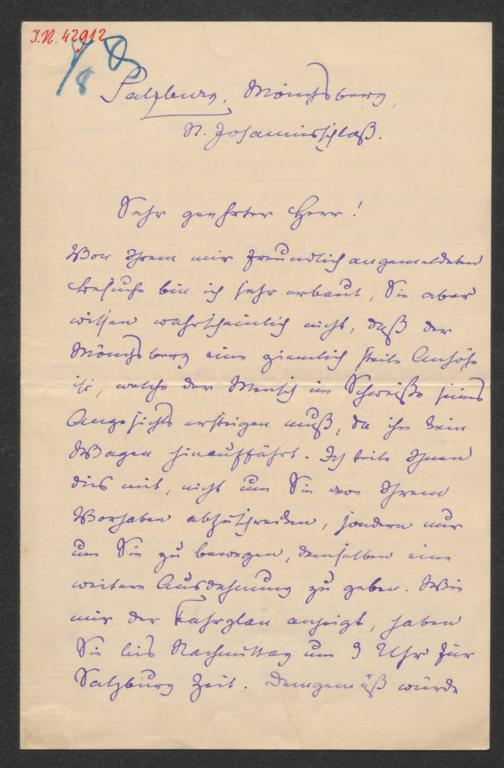 I.N. 42912
Salzburg, Mönchsberg,
St. Johannisschloß.
Sehr geehrter Herr!
Von Ihrem mir freundlich angemeldeten
Besuche bin ich sehr erbaut, Sie aber
wissen wahrscheinlich nicht, daß der
Mönchsberg eine ziemlich steile Anhöhe
ist, welche der Mensch im Schweiße seines
Angesichts ersteigen muß, da ihn kein
Wagen hinaufführt. Ich teile Ihnen
dies mit, nicht um Sie von Ihrem
Vorhaben abzuschrecken, sondern nur
um Sie zu bewegen, demselben eine
weitere Ausdehnung zu geben. Wie
mir der Fahrplan anzeigt, haben
Sie bis Nachmittag um 9 Uhr für
Salzburg Zeit. Demgemäß würde